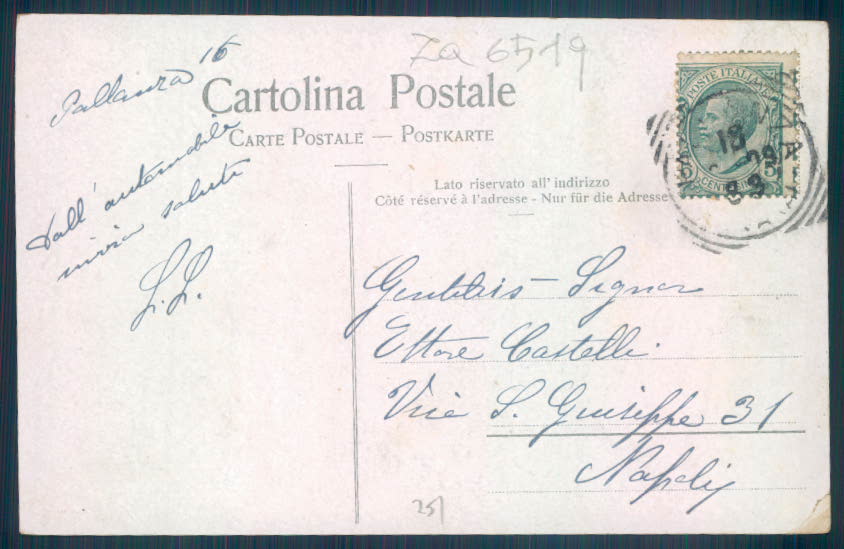 ZA 6519
Pallanza 16
Dall' automobile
invia saluti
L. L.
Cartolina Postale
CARTE POSTALE — POSTKARTE
Lato riservato all' indirizzo
Côté réservé à l'adresse - Nur für die Adresse
POSTE ITALIANE
5 CENTESIMI 5
18
09
Signor
Ettore Castelli
Via S. Giuseppe 31
Napoli
251